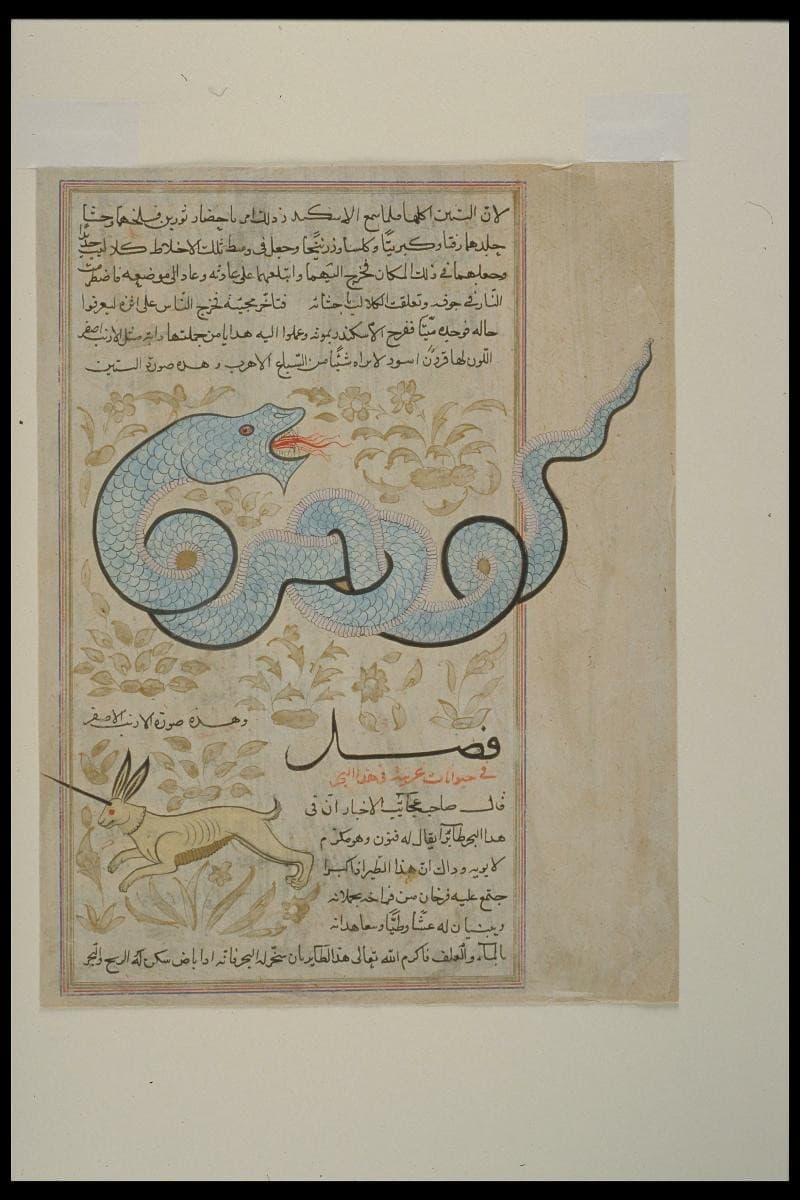 لان التنين اكلها فلما سمع الاسكندر ذلك امر باحضار ثورين فسلخهما وحشا
جلدهما زفتا وكبريتا وكلسا وزرنيخا وجعل فى وسط تلك الاخلاط كلاليب حديد
وجعلهما فى ذلك المكان فخرج التنين اليهما وابتلعهما على عادته وعاد الى موضعه فاضطرمت
النار فى جوفه وتعلقت الكلاليب باحشائه فتاخر مجيئه فخرج الناس على اثره ليعرفوا
حاله فوجدوه ميتا ففرح الاسكندر بموته وحملوا اليه هدايا من جملتها دابة مثل الارنب اصفر
اللون لها قرن اسود لا يراه شيئا من السباع الا هرب وهذه صورة التنين
وهذه صورة الارنب الاصفر
فصل
فى حيوانات غريبة فى هذا البحر
قال صاحب عجائب الاخبار ان فى
هذا البحر طايرا يقال له فنون وهو مكرم
لابويه وذاك ان هذا الطير اذا كبرا
جتمع عليه فرخان من فراخه يحملانه
ويبنيان له عشا وطيا ويتعاهدانه
بالماء والعلف فاكرم الله تعالى هذا الطاير بان سخر له البحر فانه اذا باض سكن له الريح والبحر